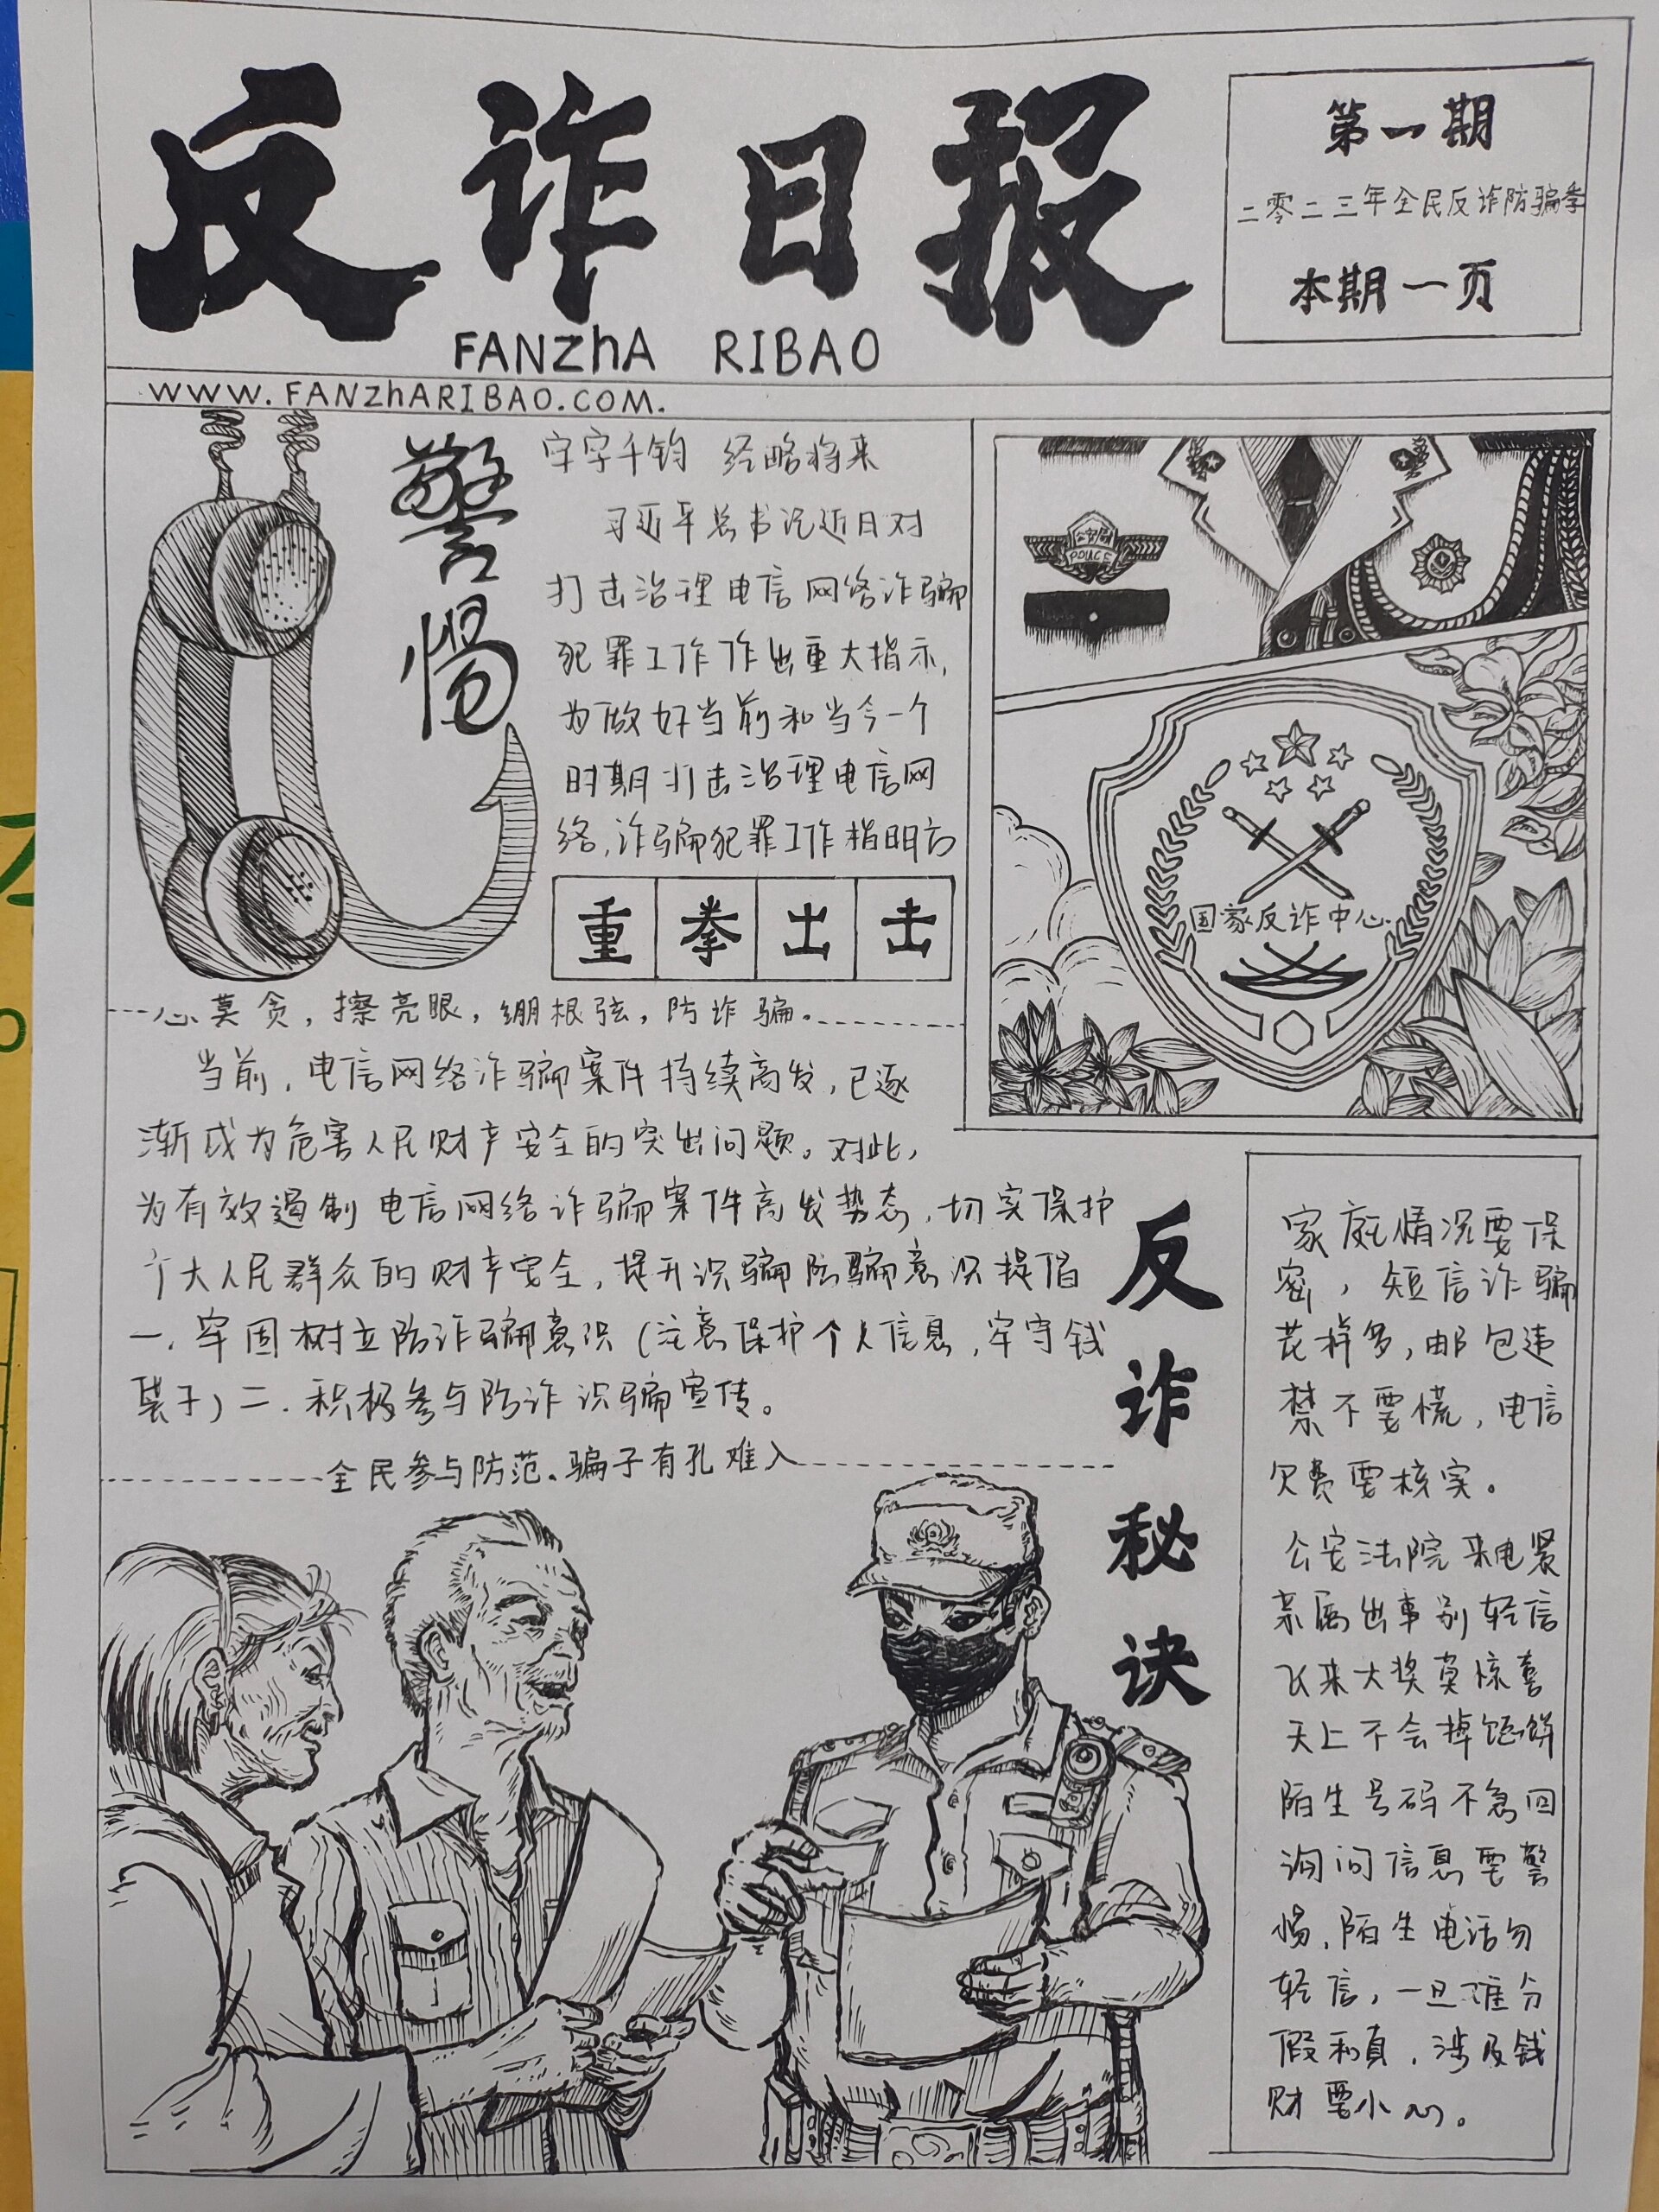 反诈日报
FANZhA RIBAO
第一期
二零二三年全民反诈防骗季
本期一页
WWW.FANZhARIBAO.COM.
警惕
字字千钧 经略将来
习近平总书记近日对
打击治理电信网络诈骗
犯罪工作作出重大指示,
为做好当前和当今一个
时期打击治理电信网
络,诈骗犯罪工作指明方
重拳出击
公安局
POLICE
国家反诈中心
心莫贪,擦亮眼,绷根弦,防诈骗.
当前,电信网络诈骗案件持续高发,已逐
渐成为危害人民财产安全的突出问题。对此,
为有效遏制电信网络诈骗案件高发势态,切实保护
广大人民群众的财产安全,提升识骗防骗意识提倡
一.牢固树立防诈骗意识(注意保护个人信息,牢守钱
袋子)二.积极参与防诈识骗宣传。
全民参与防范.骗子有孔难入
反诈秘诀
家庭情况要保
密,短信诈骗
花样多,邮包违
禁不要慌,电信
欠费要核实。
公安法院来电紧
亲属出事别轻信
飞来大奖莫惊喜
天上不会掉馅饼
陌生号码不急回
询问信息要警
惕,陌生电话勿
轻信,一旦难分
假和真,涉及钱
财要小心。